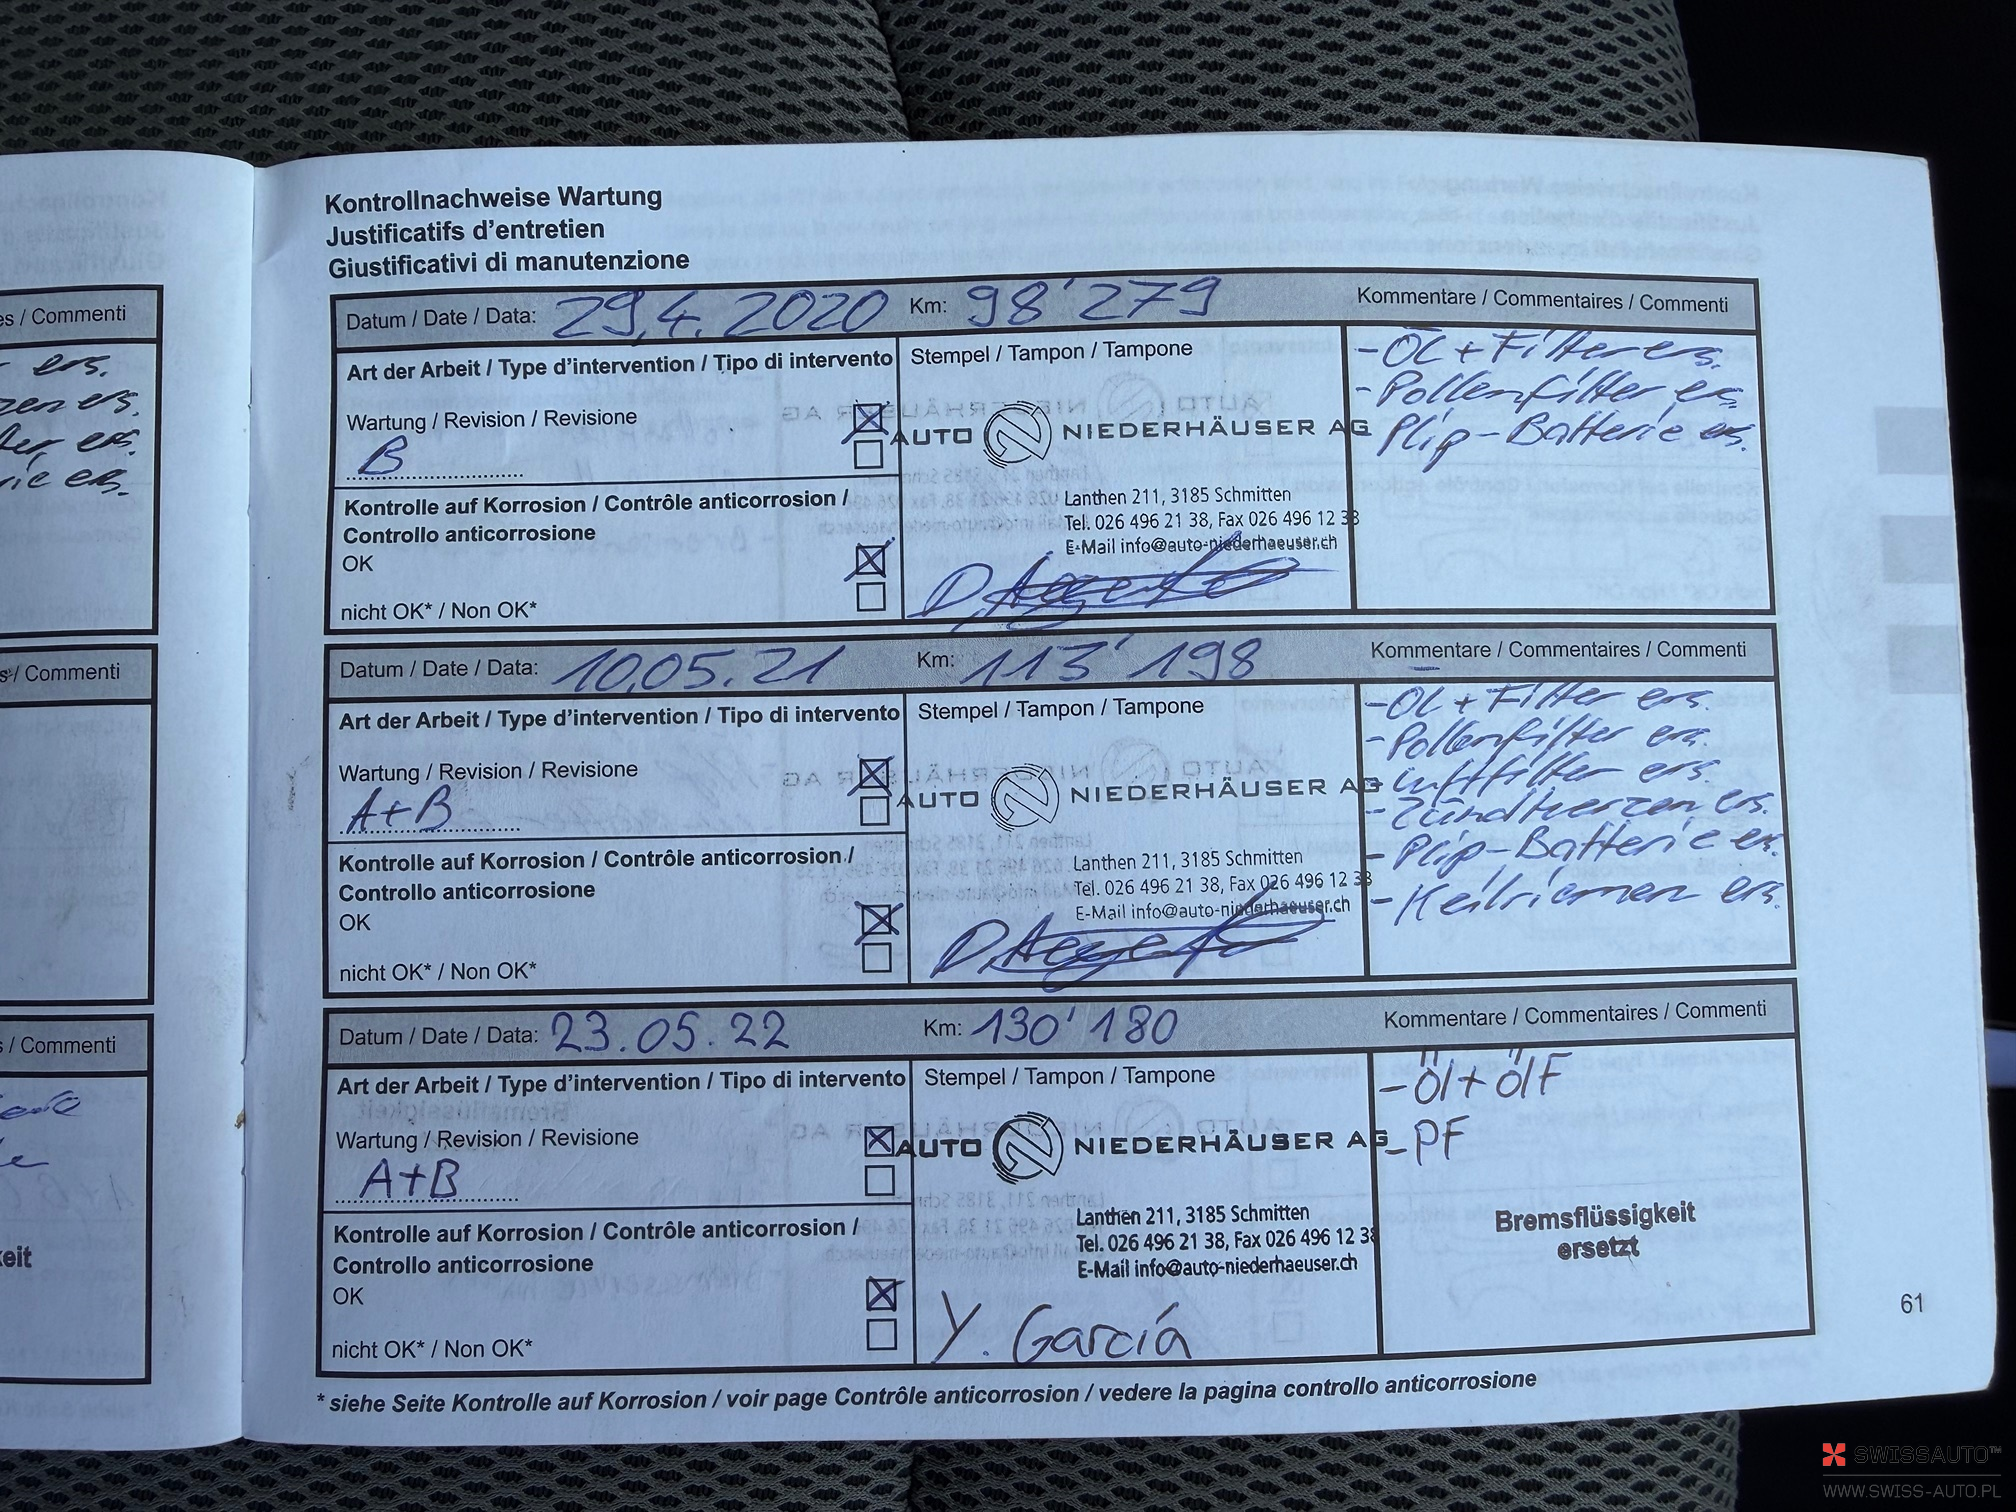 Kontrollnachweise Wartung
Justificatifs d'entretien
Giustificativi di manutenzione
es / Commenti
ers.
zen ers.
ter, ers.
rie ers.
s / Commenti
s / Commenti
eit
Datum / Date / Data: 29.4.2020 Km: 98'279 Kommentare / Commentaires / Commenti
Art der Arbeit / Type d'intervention / Tipo di intervento
Wartung / Revision / Revisione
B
Kontrolle auf Korrosion / Contrôle anticorrosion /
Controllo anticorrosione
OK
nicht OK* / Non OK*
Stempel / Tampon / Tampone
AUTO NIEDERHÄUSER AG
Lanthen 211, 3185 Schmitten
Tel. 026 496 21 38, Fax 026 496 12 38
E-Mail info@auto-niederhaeuser.ch
- Öl + Filter ers.
- Pollenfilter ers.
- Plip-Batterie ers.
Datum / Date / Data: 10.05.21 Km: 113'198 Kommentare / Commentaires / Commenti
Art der Arbeit / Type d'intervention / Tipo di intervento
Wartung / Revision / Revisione
A+B
Kontrolle auf Korrosion / Contrôle anticorrosion /
Controllo anticorrosione
OK
nicht OK* / Non OK*
Stempel / Tampon / Tampone
AUTO NIEDERHÄUSER AG
Lanthen 211, 3185 Schmitten
Tel. 026 496 21 38, Fax 026 496 12 38
E-Mail info@auto-niederhaeuser.ch
- Öl + Filter ers.
- Pollenfilter ers.
- Luftfilter ers.
- Zündkerzen ers.
- Plip-Batterie ers.
- Keilriemen ers.
Datum / Date / Data: 23.05.22 Km: 130'180 Kommentare / Commentaires / Commenti
Art der Arbeit / Type d'intervention / Tipo di intervento
Wartung / Revision / Revisione
A+B
Kontrolle auf Korrosion / Contrôle anticorrosion /
Controllo anticorrosione
OK
nicht OK* / Non OK*
Stempel / Tampon / Tampone
AUTO NIEDERHÄUSER AG
Lanthen 211, 3185 Schmitten
Tel. 026 496 21 38, Fax 026 496 12 38
E-Mail info@auto-niederhaeuser.ch
Y. García
- Öl + ÖlF
- PF
Bremsflüssigkeit
ersetzt
61
* siehe Seite Kontrolle auf Korrosion / voir page Contrôle anticorrosion / vedere la pagina controllo anticorrosione
SWISSAUTO™
WWW.SWISS-AUTO.PL